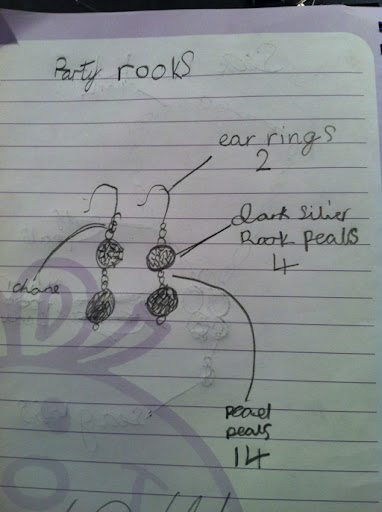 Party rooks
ear rings
2
dark silier
Rook peals
4
chane
pearl
peals
14